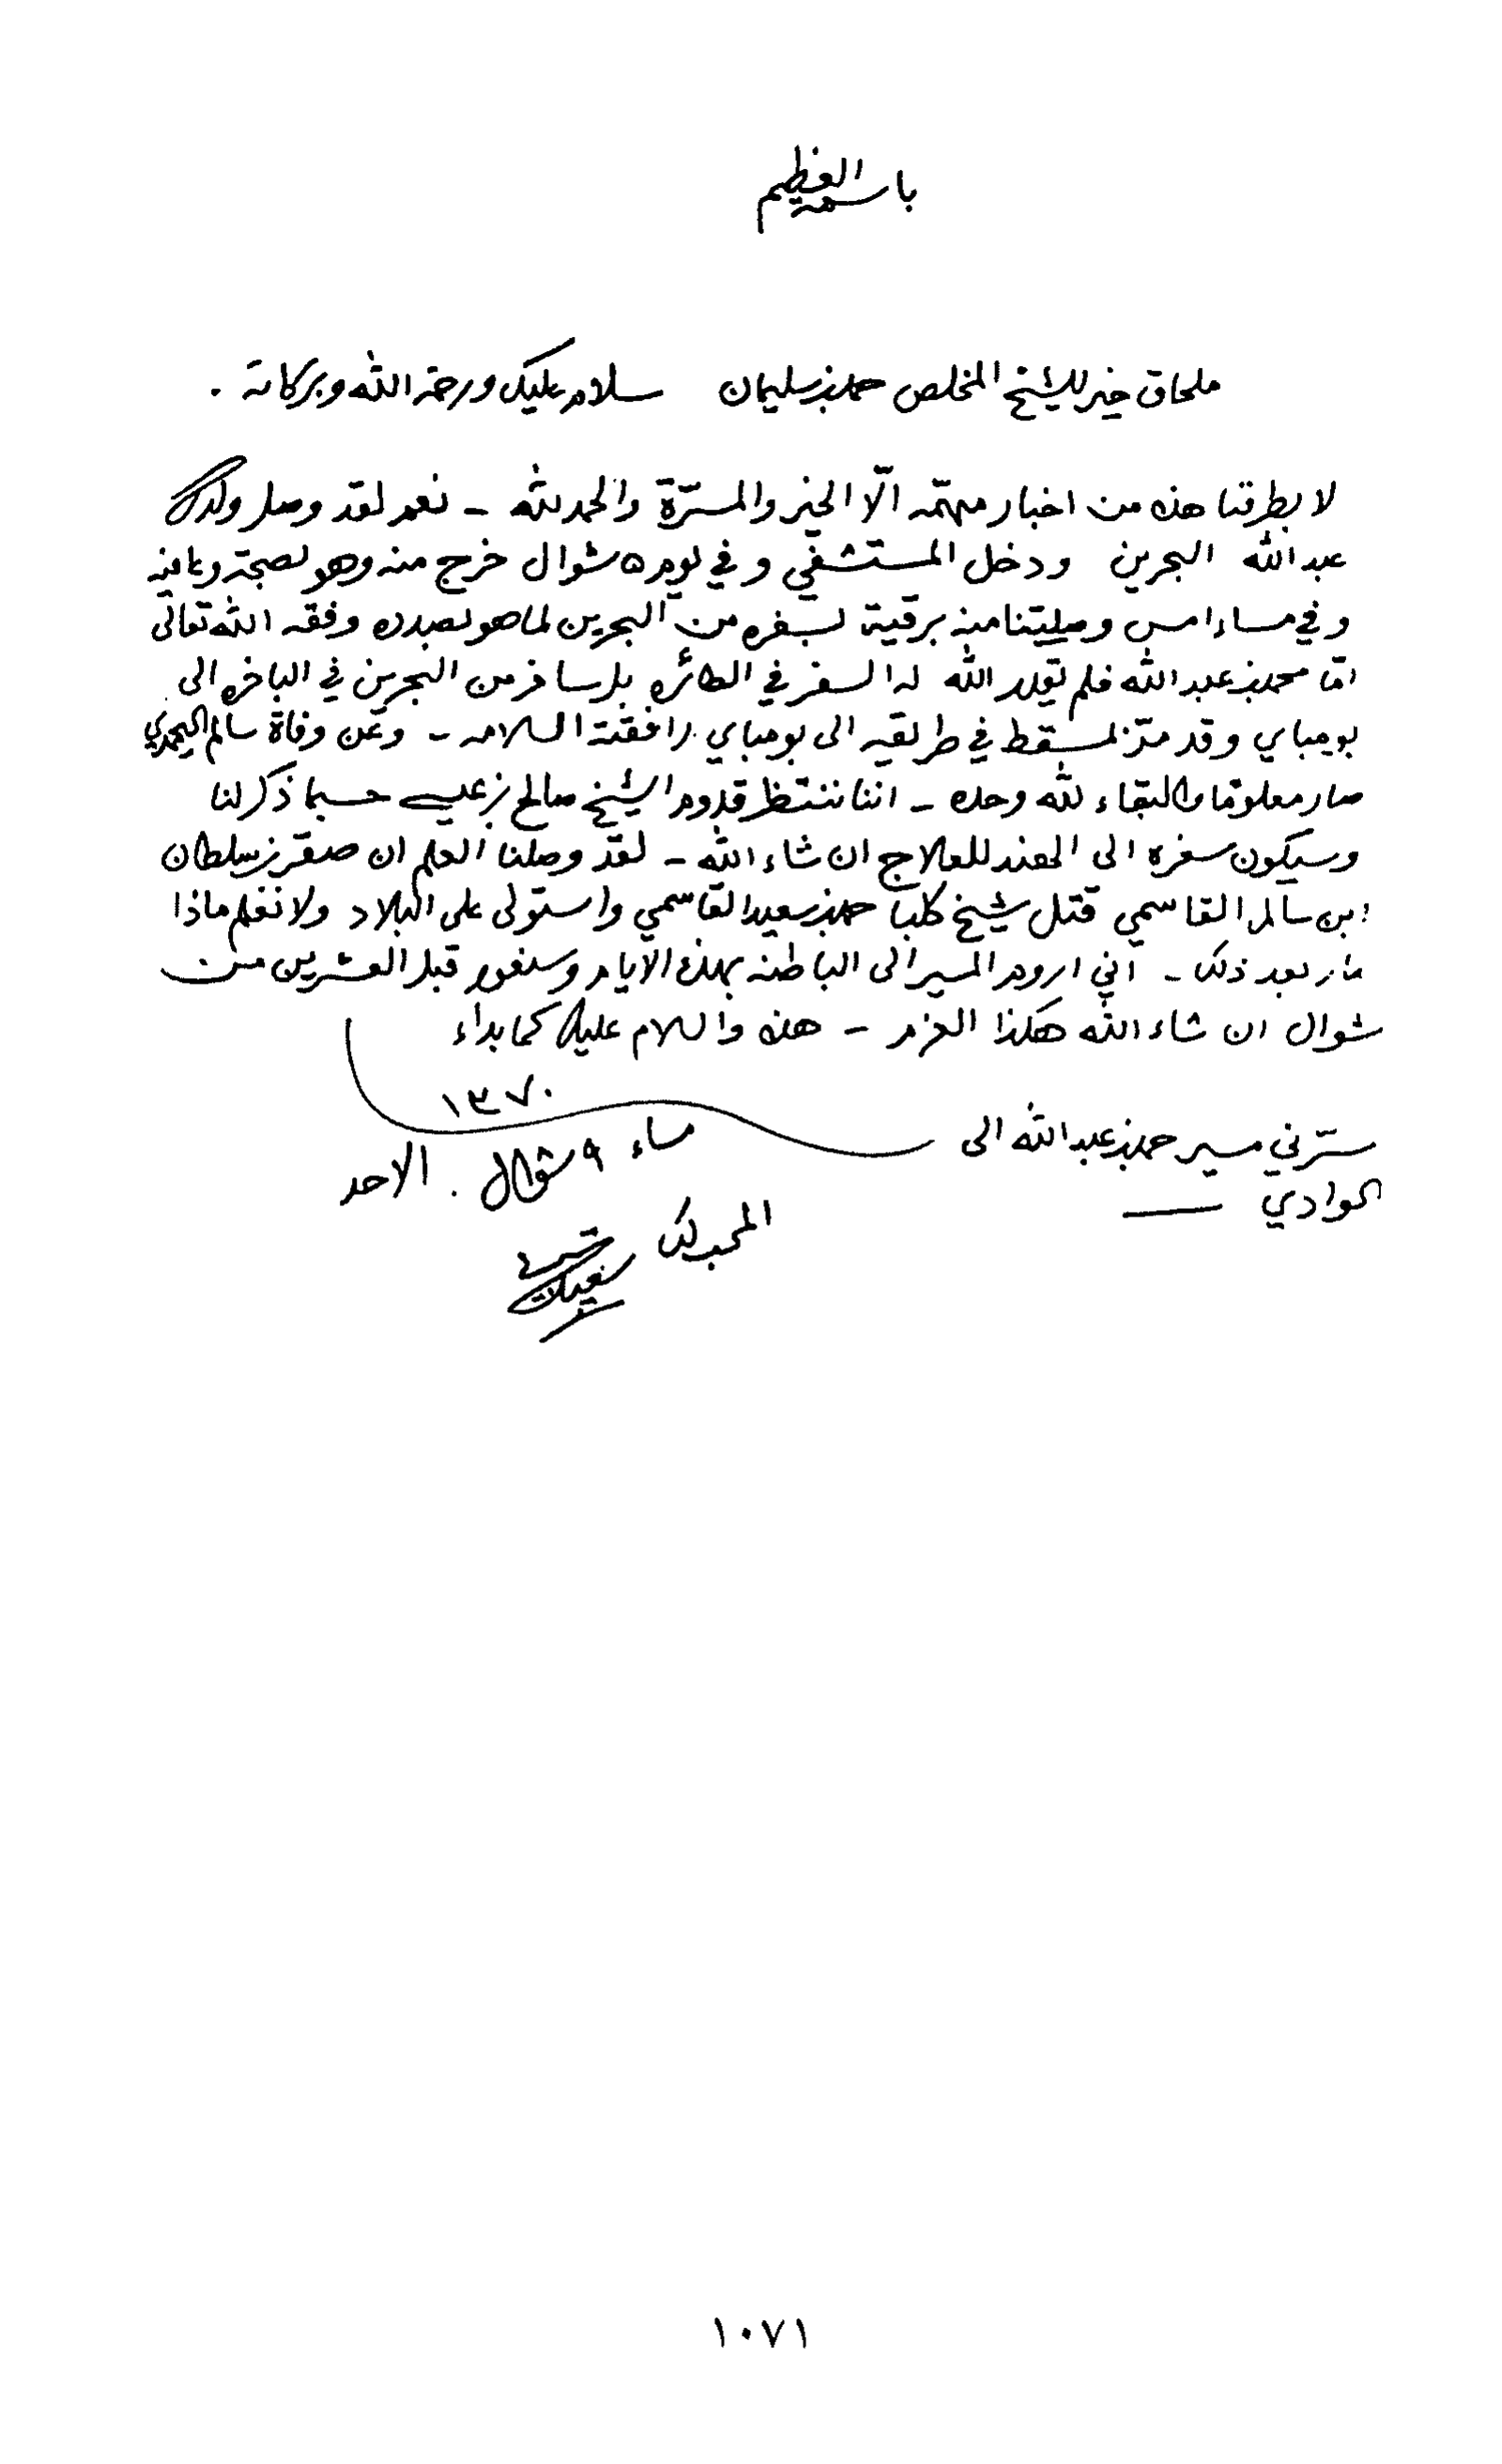 باسمه العظيم
ملحاق خير للشيخ المخلص حمد بن سليمان سلام عليك ورحمة الله وبركاته .
لا بطرفنا هذه من اخبار مهمّه الّا الخير والمسرّة والحمد لله – نعم لقد وصل ولدك
عبد الله البحرين ودخل المستشفى وفي يوم ٥ شوال خرج منه وهو بصحة وعافيه
وفي مساء امس وصلتنا منه برقية بسفره من البحرين لما هو بصدده وفقه الله تعالى
امّا محمد بن عبد الله فلم يقدر الله له السفر في الطائره بل سافر من البحرين في الباخره الى
بومباي وقد مرّ بمسقط في طريقه الى بومباي رافقته السلامه – وعن وفاة سالم اليحمدي
صار معلومًا والبقاء لله وحده – اننا ننتظر قدوم الشيخ صالح بن عيسى حسبما ذكر لنا
وسيكون سفره الى الهند للعلاج ان شاء الله – لقد وصلنا العلم ان صقر بن سلطان
ابن سالم القاسمي قتل شيخ كلبا حمد بن سعيد القاسمي واستولى على البلاد ولا نعلم ماذا
صار بعد ذلك – اني اروم المسير الى الباطنه بهذه الايام وسنعود قبل العشرين من
شوال ان شاء الله هكذا العزم – هذه والسلام عليك كما بداء
سرّني مسير حمد بن عبد الله الى
الوادي
١٣٧٠
مساء ٩ شوال . الاحد
المحب لك
١٠٧١